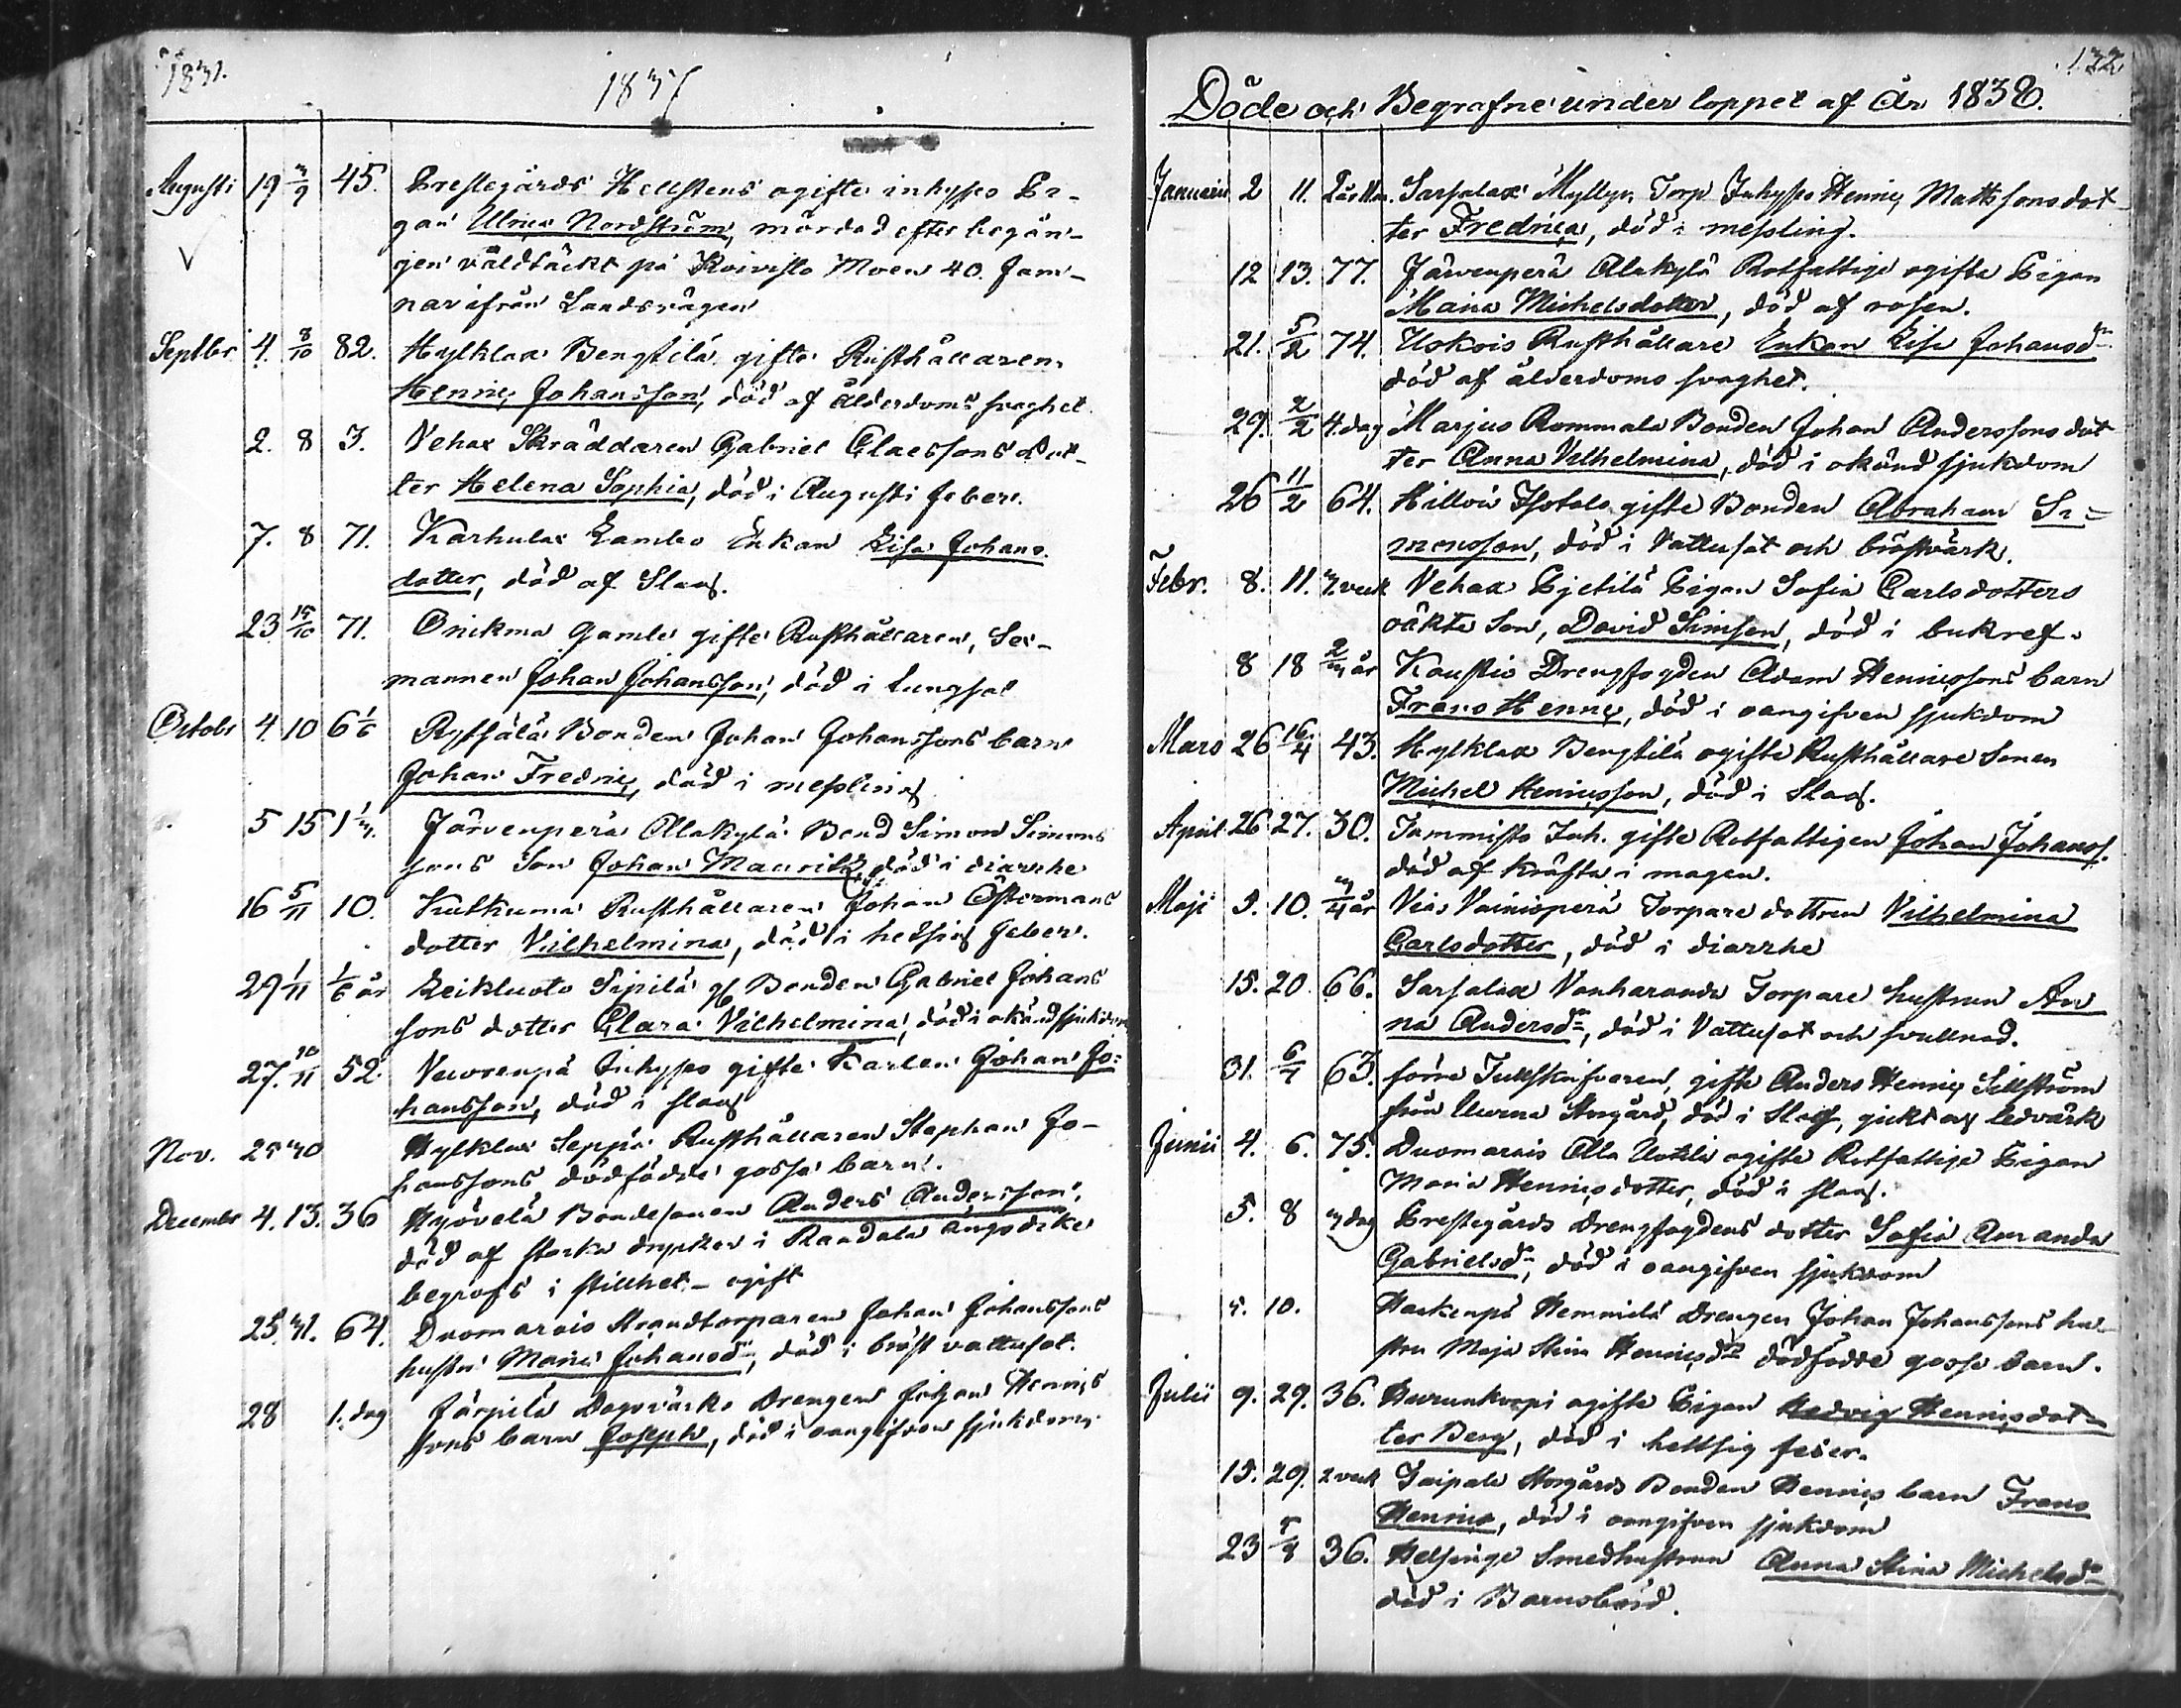 1837.
1837
Augusti 19 3/9 45. Prestegårds Hellstens ogifta inhyses Pi-
gan Ulrica Nordström, mördad efter begån-
gen våldtäckt på Koivisto Moen 40. fam-
nar ifrån Landsvägen
Septbr. 4. 8/10 82. Hylklax Bengtilä gifte Rusthållaren
Henric Johansson, död af ålderdoms svaghet.
2. 8 3. Vehax Skräddaren Gabriel Claessons dot-
ter Helena Sophia, död i Augusti feber.
7. 8 71. Karhulax Lambo Enkan Lisa Johans
dotter, död af Slag.
23 15/10 71. Onikma Gamle gifte Rusthållaren, Sex-
mannen Johan Johansson, död i lungsot
Octobr 4. 10 6 1/6 Rytsälä Bonden Johan Johanssons barn
Johan Fredric, död i messling
5 15 1 1/3. Järvenperä Allakylä Bond Simon Simons
sons Son Johan Mauritz, död i diarrhe
16 5/11 10. Kutkuma Rusthållaren Johan Östermans
dotter Vilhelmina, död i hetsig feber.
29 1/11 1/6 år Leikluoto Sipilä Bonden Gabriel Johans
sons dotter Clara Vilhelmina, död i okänd sjukdom
27. 10/11 52 inhyses gifte Karlen Johan Jo=
hansson, död i slag
Nov. 25 30 Hylklax Seppä Rusthållaren Stephan Jo-
hanssons dödfödde gosse barn.
Decembr 4. 13. 36 Hyövelä Bondesonen Anders Andersson,
död af starka drycker i Raadala ängsdike
begrofs i stillhet - ogift
25. 31. 64. Duomarois Strandtorparen Johan Johanssons
hustru Maria Johansdr, död i bröst vattusot.
28 1. dag Järpilä Dagsvärks Drengen Johan Henrics
sons barn Joseph, död i oangifven sjukdom
132
Döde och Begrafne under loppet af År 1838.
Januarii 2 11. 2 år 11 m. Sarsalax Myllyn Torp Inhyses Henric Mattssons dot
ter Fredrica, död i messling.
12 13. 77. Järvenperä Allakylä Rotfattige ogifta Pigan
Maria Michelsdotter, död af rosen.
21. 5/2 74. Uskois Rusthållare Enkan Lisa Johansdr
död af ålderdoms svaghet.
29. 2/2 4. dag Marjus Rommala Bonden Johan Anderssons dot
ter Anna Vilhelmina, död i okänd sjukdom
26 11/2 64. Hillois Isotalo gifte Bonden Abraham Si=
monsson, död i Vattusot och bröstvärk.
Febr. 8. 11. 3. veck Vehax Pjetilä Pigan Sofia Carlsdotters
oäkta Son, David Simson, död i bukref.
8 18 2/3 år Kaustio Drengfogden Adam Henricssons barn
Frans Henric, död i oangifven sjukdom
Mars 26 16/4 43. Hylklax Bengtilä ogifte Rusthållare Sonen
Michel Henricsson, död i Slag.
April 26 27. 30. Tammisto Inh. gifte Rotfattigen Johan Johanss.
död af kräfta i magen.
Maji 5. 10. 3/4 år Vias Vainioperä Torpare dottren Vilhelmina
Carlsdotter, död i diarrhe
15. 20 66. Sarsalax Vanharanda Torpare hustrun An
na Andersdr, död i Vattusot och svullnad.
31. 6/ 63. förre Tullskrifvaren, gifte Anders Henric Sillström
från Storgård, död i Slag, gickt og ledvärk
Junii 4. 6. 75. Duomarois Alla Uotila ogifte Rotfattige Pigan
Maria Henricsdotter, död i slag.
5. 8 3 dag Prestegårds Drengfogdens dotter Sofia Amanda
Gabrielsdr, död i oangifven sjukdom
5. 10. Harkenpä Hemmilä Drengen Johan Johanssons hu-
stru Maja Stina Henricsdr dödfödde gosse barn.
Julii 9. 29. 36. Hurunkorpi ogifte Pigan Hedvig Henricsdot-
ter Berg, död i hettsig feber.
15. 29. 2 veck Taipale Storgårds Bonden Henrics barn Frans
Henric, död i oangifven sjukdom
23 5/8 36. Helsinge Smedhustrun Anna Stina Michelsdr
död i Barnsbörd.